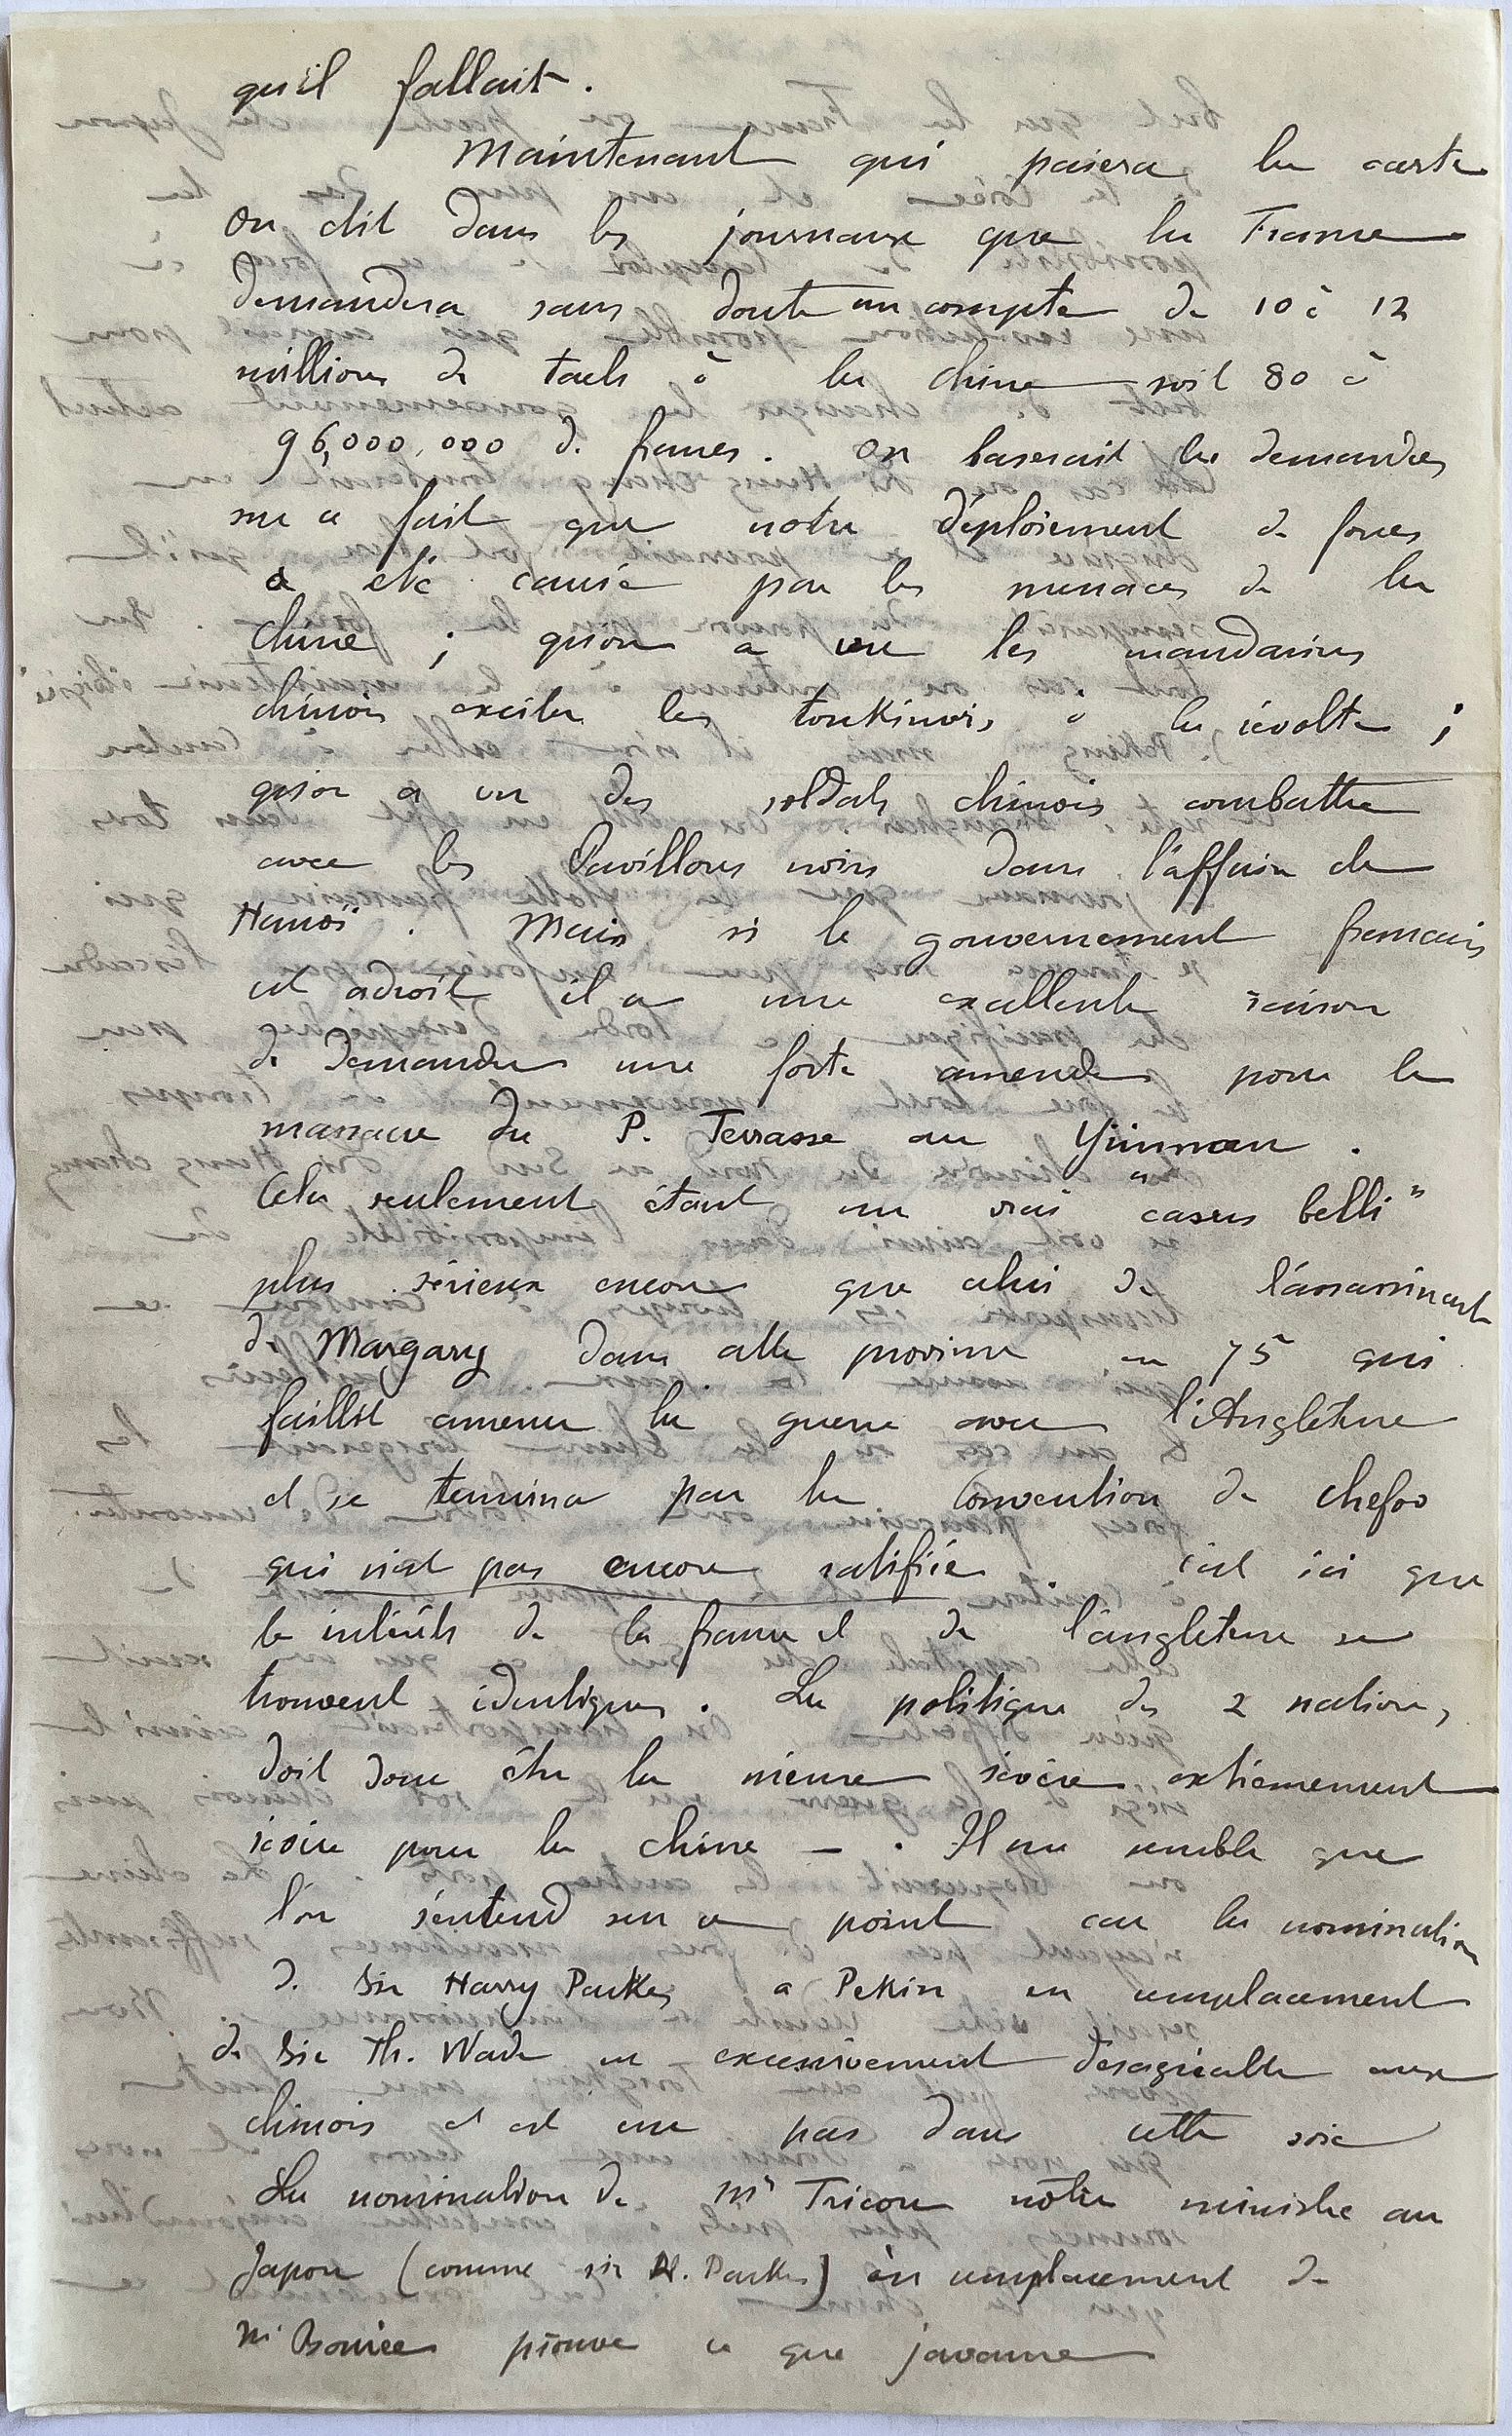 qu'il fallait.
Maintenant qui paiera la carte
on dit dans les journaux que la France
demandera sans doute un compte de 10 à 12
millions de taels à la chine soit 80 à
96,000,000 de francs. On baserait les demandes
sur ce fait que notre déploiement de forces
a été causé par les menaces de la
Chine ; qu'on a vu les mandarins
chinois exciter les tonkinois à la révolte ;
qu'on a vu des soldats chinois combattre
avec les Pavillons noirs dans l'affaire de
Hanoï. Mais si le gouvernement francais
est adroit il a une excellente raison
de demander une forte amende pour le
massacre du P. Terrasse au Yünnan.
Cela seulement étant un vrai "casus belli"
plus sérieux encore que celui de l'assassinat
de Margary dans cette province en 75 qui
faillit amener la guerre avec l'Angleterre
et se termina par la Convention de Chefoo
qui n'est pas encore ratifiée. c'est ici que
les intérêts de la france et de l'angleterre se
trouvent identiques. La politique des 2 nations,
doit donc être la même sévère extrêmement
sévère pour la chine - . Il me semble que
l'on s'entend sur ce point car la nomination
de Sir Harry Parkes a Pekin en remplacement
de Sir Th. Wade est excessivement désagréable aux
chinois et est un pas dans cette voie
La nomination de Mr Tricou notre ministre au
Japon (comme sir H. Parkes) en remplacement de
Mr Bourée prouve ce que j'avance